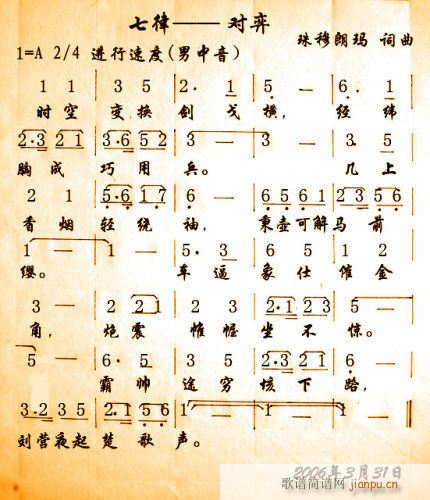 七律——对弈
珠穆朗玛 词曲
1=A 2/4 进行速度(男中音)
1 1 | 3 5 | 2· 1 | 5 — | 6· 1
时空变换剑戈横,经纬
2·3 2 1 | 3·6 5 2 | 3 — | 3 — | 3 5
胸成巧用兵。几上
2 1 | 5·6 1 7 | 6 — | 6 5 6 1 | 2 3 5 6
香烟轻绕袖,东壶可解马前
1 — | 1 — | 5· 3 | 6 5 | 1 2
缨。车逼象仕催金
3 — | 2 2 1 | 2 3 | 2·1 2 3 | 5 —
角,炮震帷幄坐不惊。
5 — | 6· 5 | 3 5 | 2·3 2 1 | 6 —
霸帅途穷垓下路,
3·2 3 5 | 2·1 5 6 | 1 — | 1 — | 1 —
刘营夜起楚歌声。
2006年3月31日
歌谱简谱网
jianpu.cn